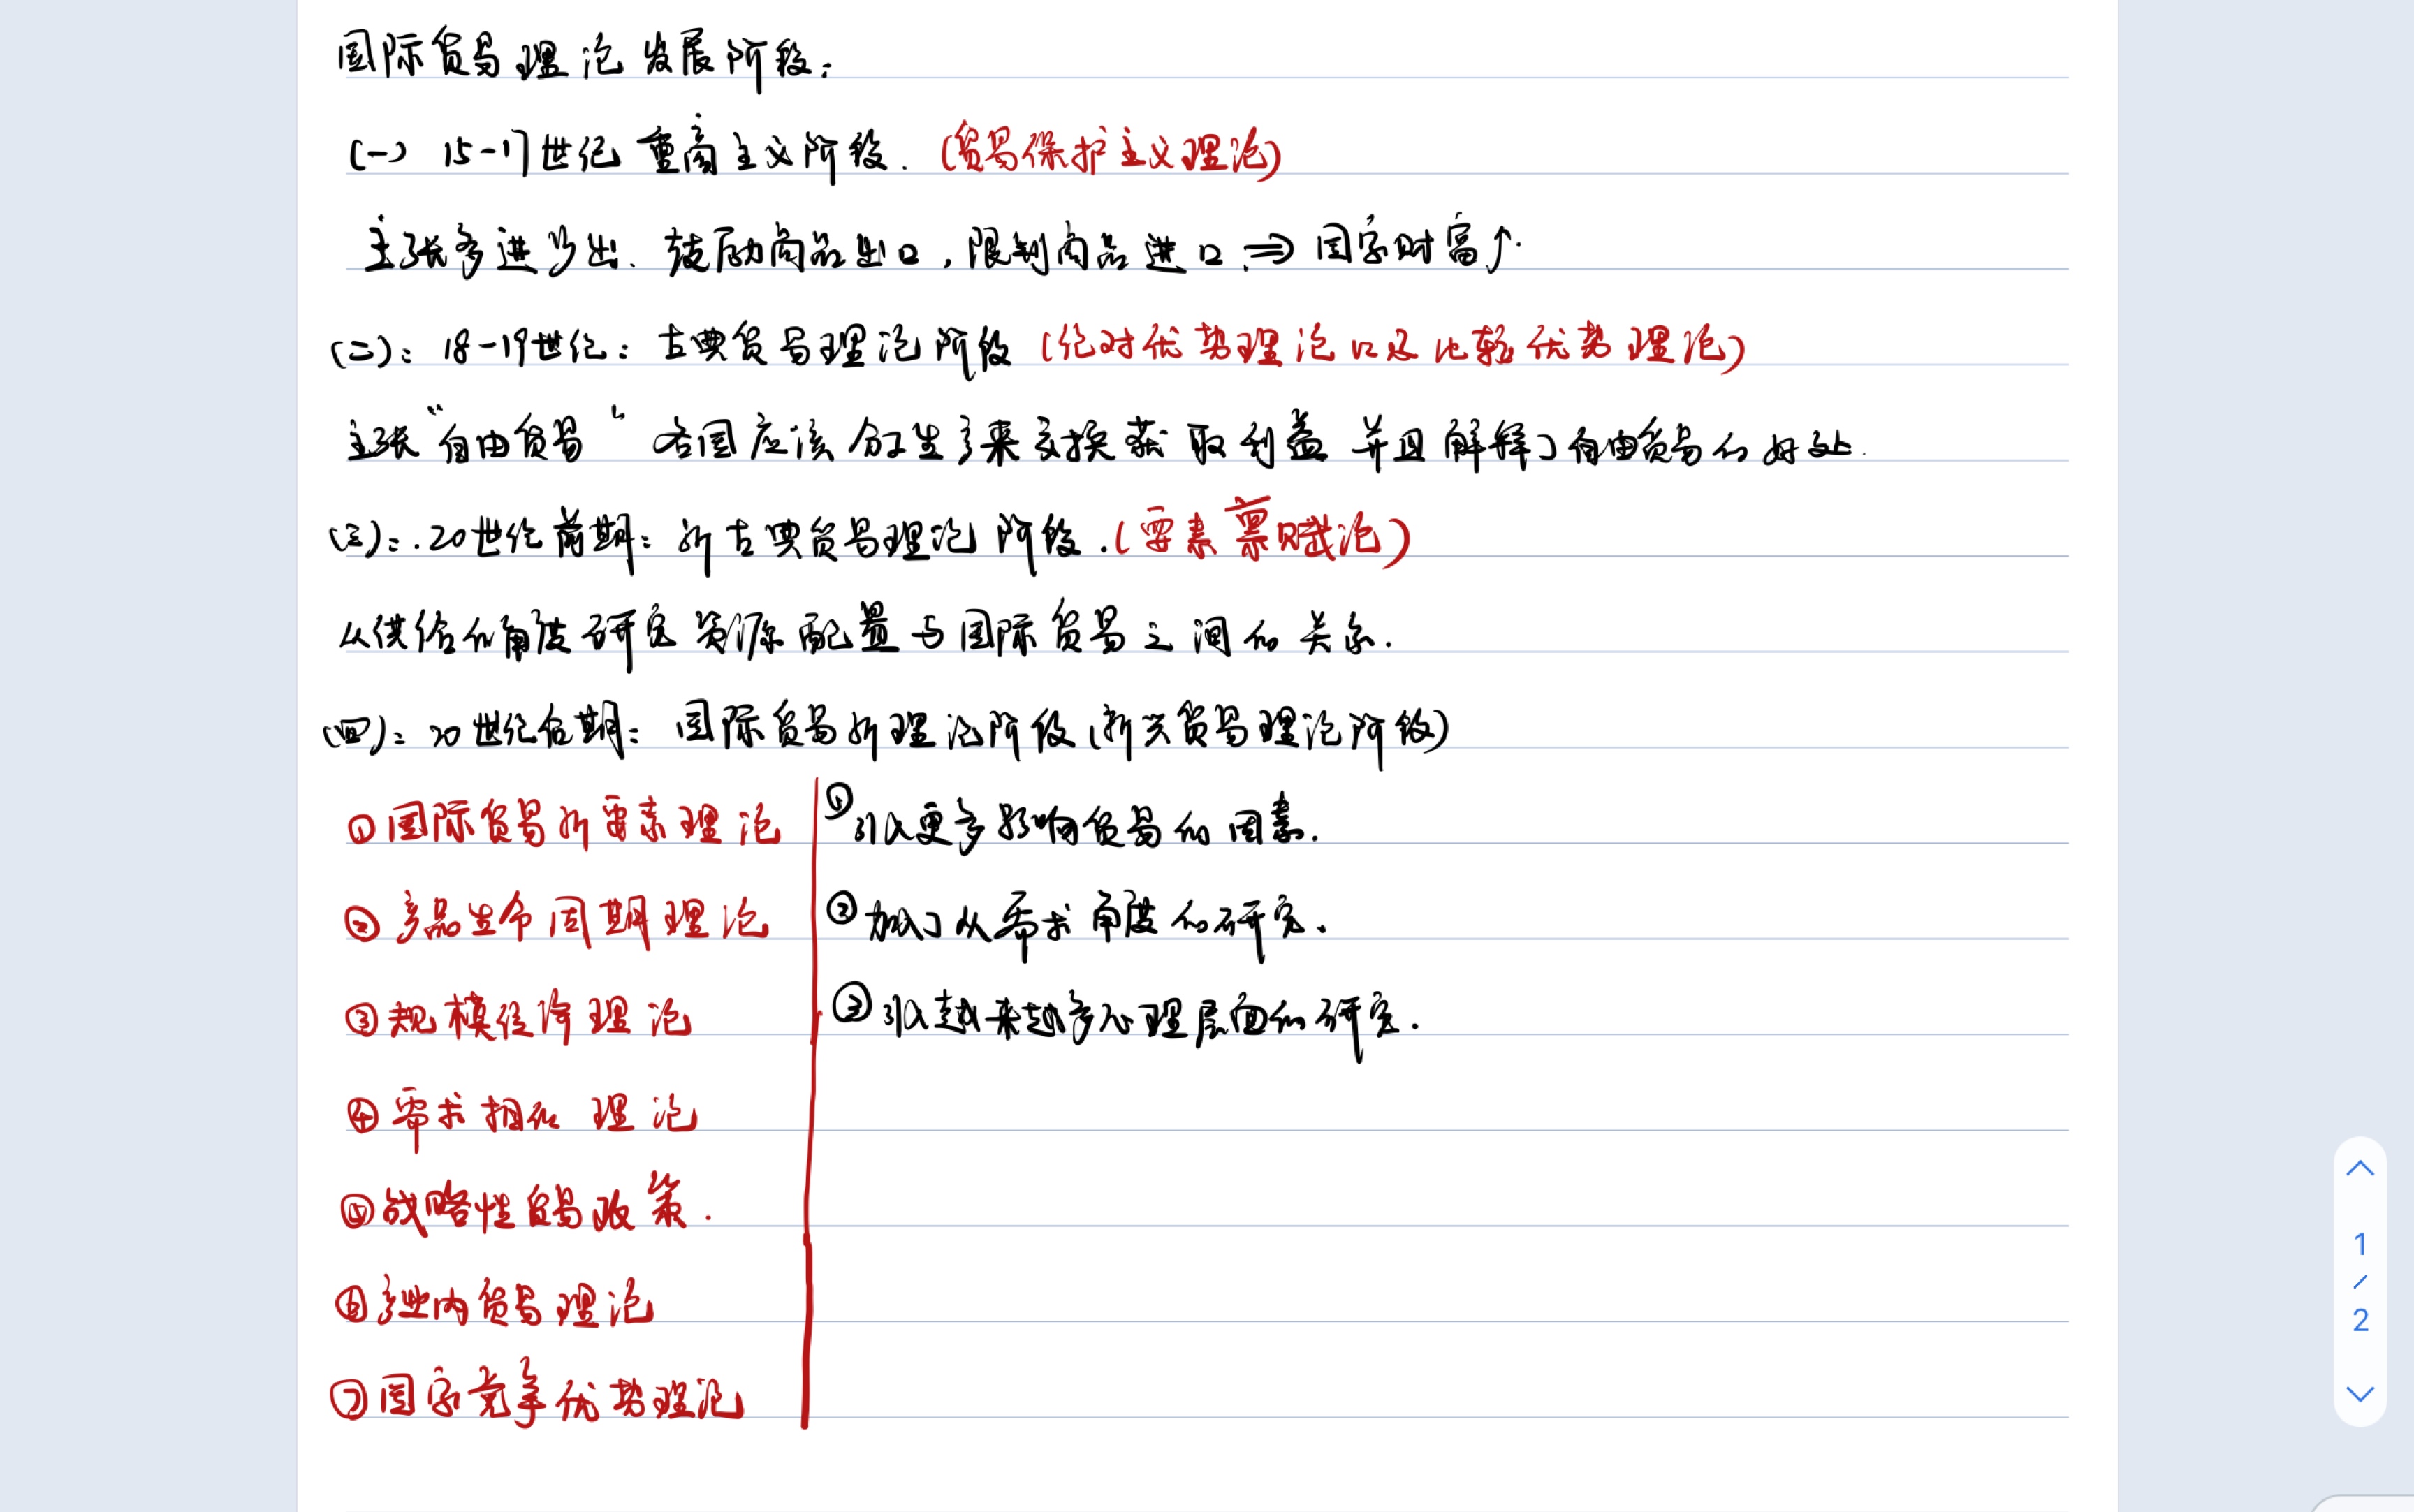 国际贸易理论发展阶段:
(一) 15-17世纪重商主义阶段. (贸易保护主义理论)
主张多进少出、鼓励商品出口,限制商品进口.⇒国家财富↑.
(二): 18-19世纪: 古典贸易理论阶段 (绝对优势理论以及比较优势理论)
主张“自由贸易” 各国应该分工生产来交换获取利益 并且解释了自由贸易的好处.
(三):.20世纪前期: 新古典贸易理论阶段.(要素禀赋论)
从供给的角度研究资源配置与国际贸易之间的关系.
(四): 20世纪后期: 国际贸易新理论阶段(新兴贸易理论阶段)
①国际贸易新要素理论
②产品生命周期理论
③规模经济理论
④需求相似理论
⑤战略性贸易政策.
⑥产业内贸易理论
⑦国家竞争优势理论
①引入更多影响贸易的因素.
②加入了从需求角度的研究.
③引入越来越多心理层面的研究.
1
/
2